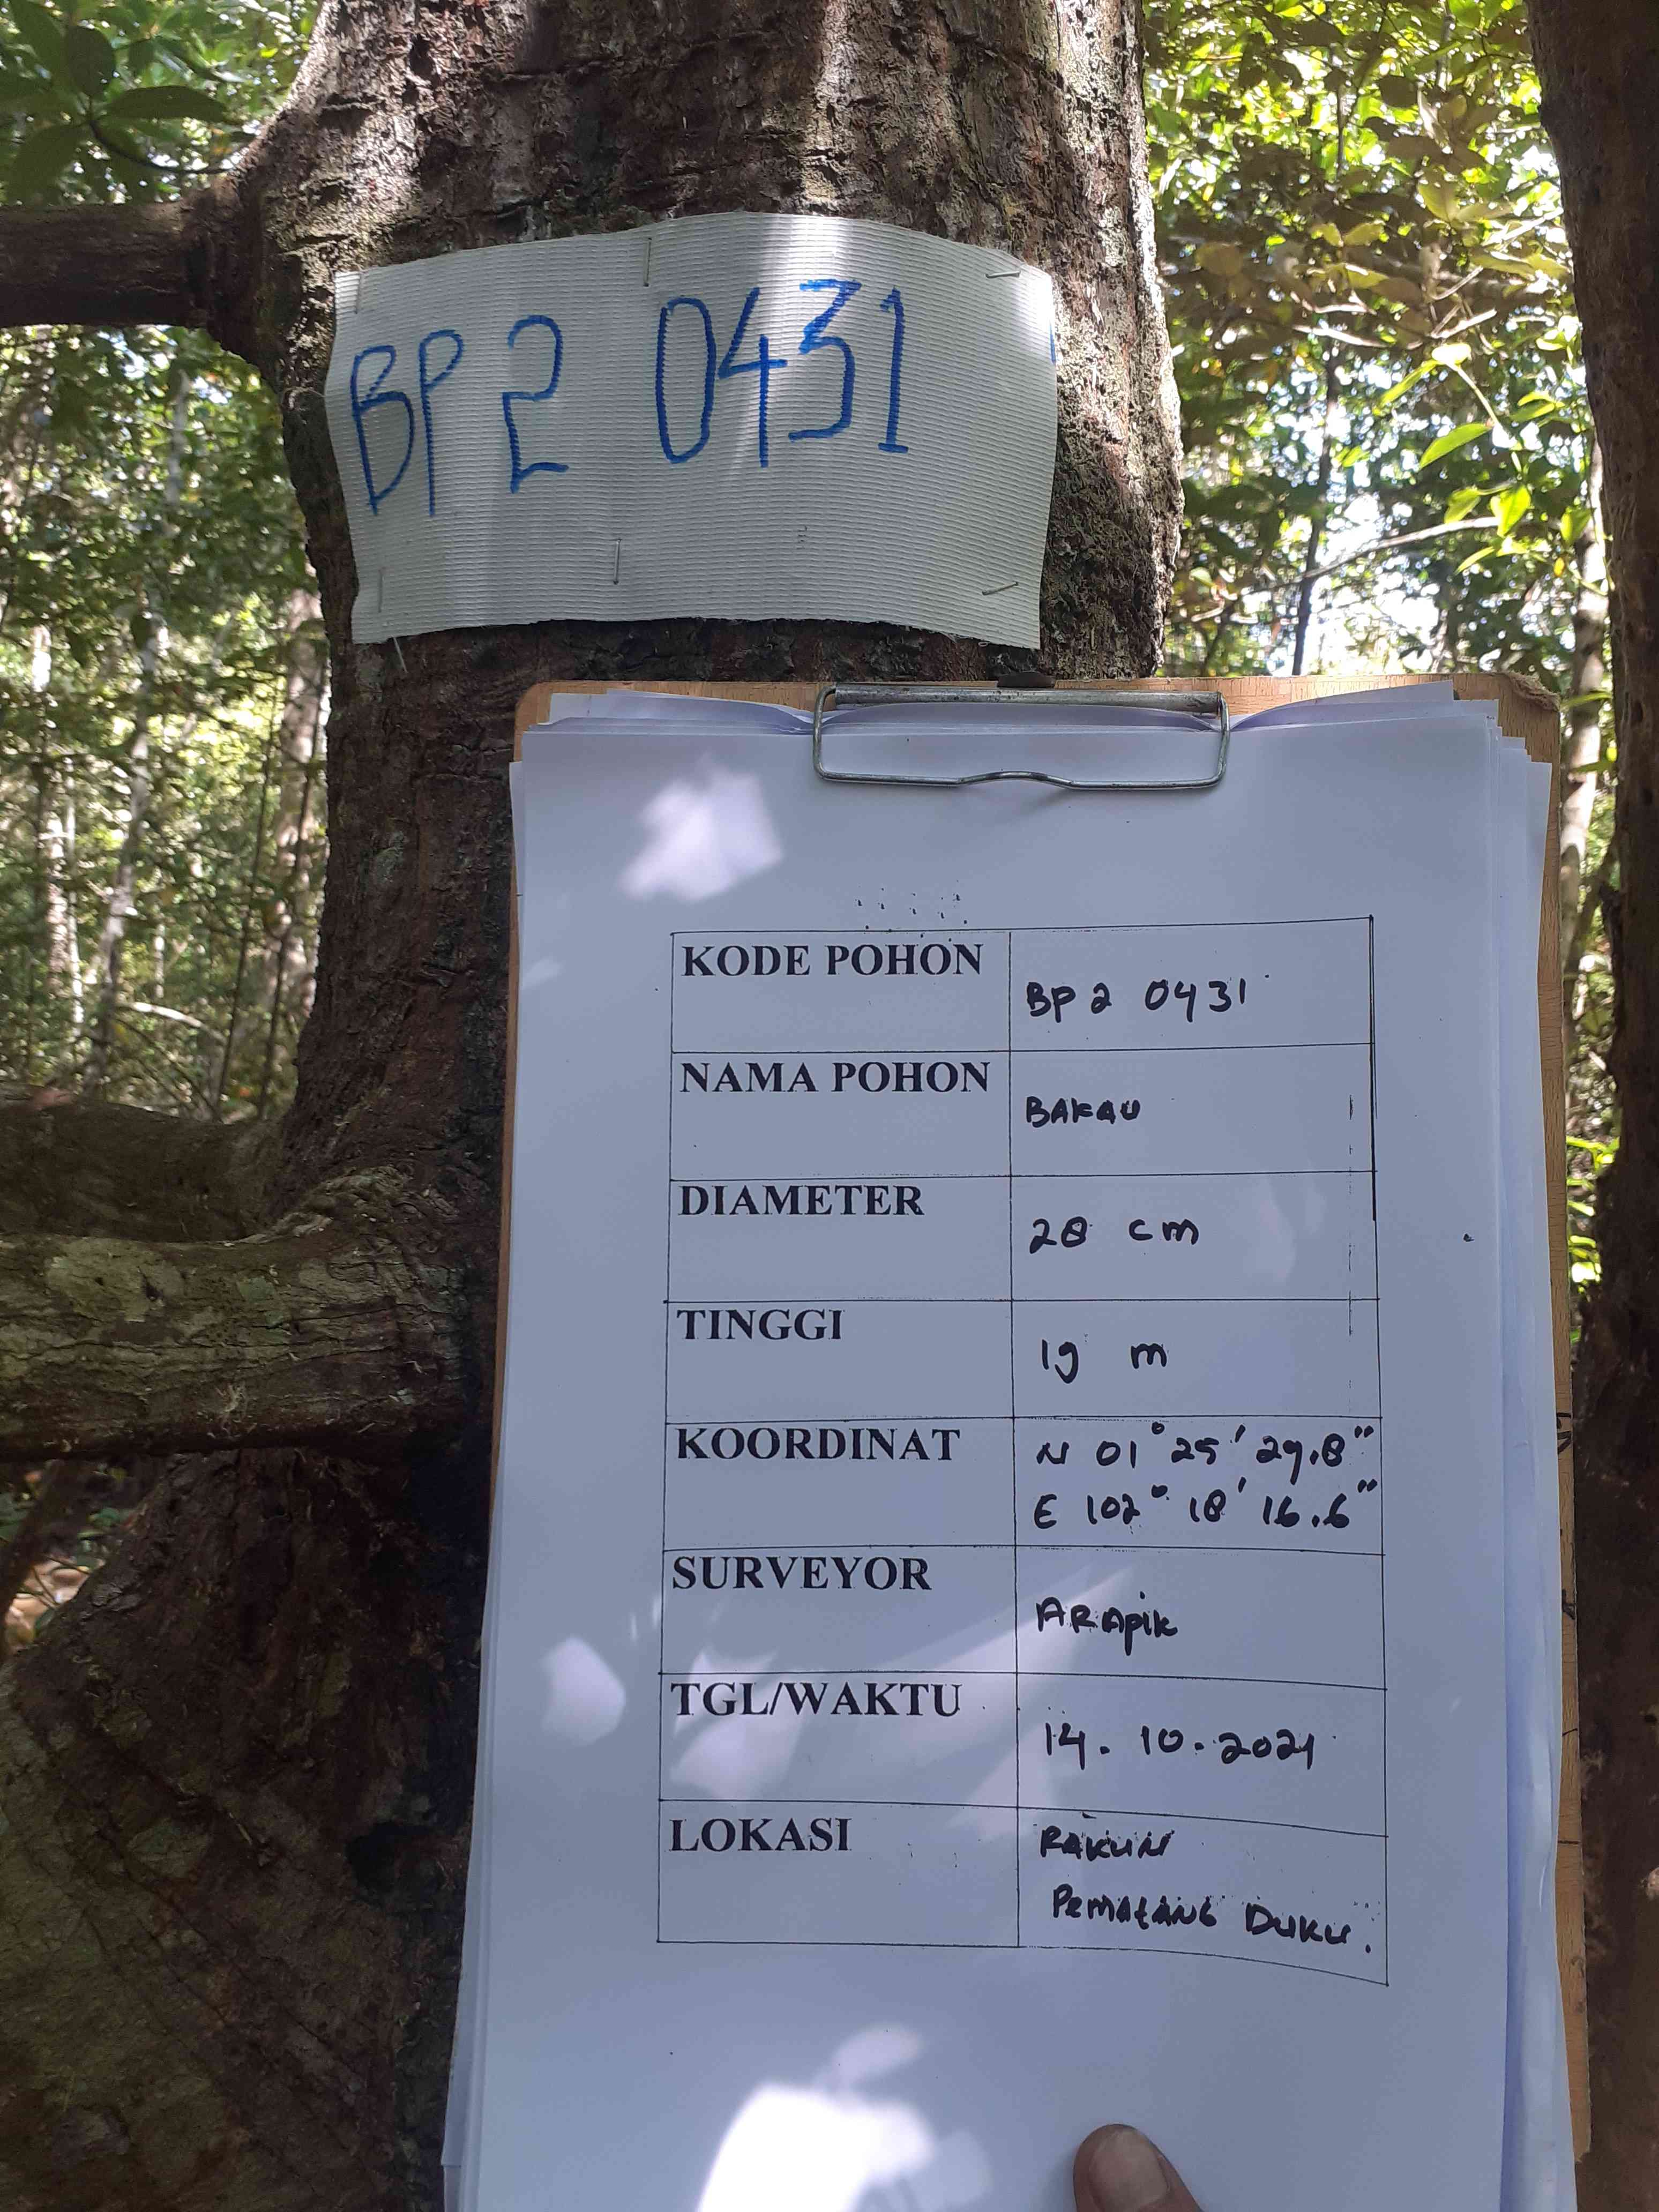 BP 2 0431
KODE POHON
BP 2 0431
NAMA POHON
BAKAU
DIAMETER
28 cm
TINGGI
19 m
KOORDINAT
N 01° 25' 29.8"
E 102° 18' 16.6"
SURVEYOR
ARApik
TGL/WAKTU
14. 10. 2021
LOKASI
RAKUN
PEMATANG DUKU.